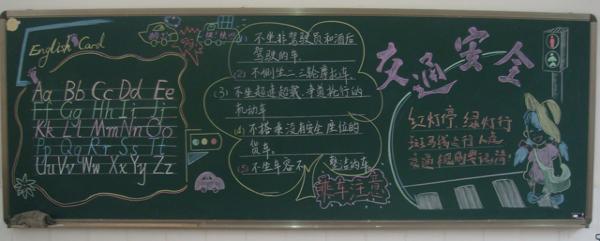 English Card
Aa Bb Cc Dd Ee
Ff Gg Hh Ii Jj
Kk Ll Mm Nn Oo
Pp Qq Rr Ss Tt
Uu Vv Ww Xx Yy Zz
(1) 不坐非驾驶员和酒后
驾驶的车.
(2) 不侧坐二三轮摩托车.
(3) 不坐超速超载、争道抢行的
机动车
(4) 不搭乘没有安全座位的
货车.
(5) 不坐车容不整洁的车
乘车注意
交通安全
红灯停,绿灯行
斑马线上行人走
交通规则要记清